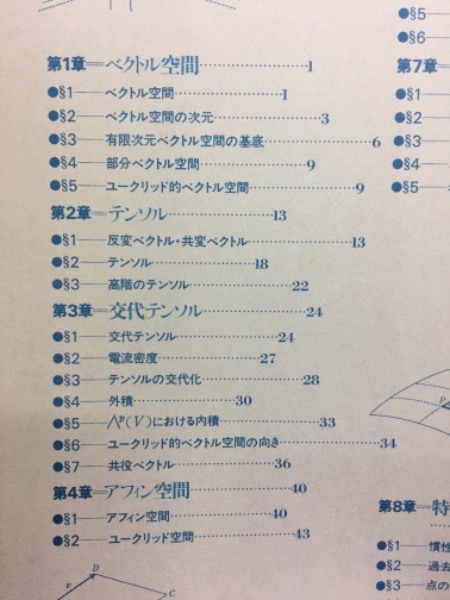 第1章＝ベクトル空間…………………1
●§1──ベクトル空間…………………1
●§2──ベクトル空間の次元…………………3
●§3──有限次元ベクトル空間の基底…………………6
●§4──部分ベクトル空間…………………9
●§5──ユークリッド的ベクトル空間…………………9
第2章＝テンソル…………………13
●§1──反変ベクトル・共変ベクトル…………………13
●§2──テンソル…………………18
●§3──高階のテンソル…………………22
第3章＝交代テンソル…………………24
●§1──交代テンソル…………………24
●§2──電流密度…………………27
●§3──テンソルの交代化…………………28
●§4──外積…………………30
●§5──⋀ᵖ(V)における内積…………………33
●§6──ユークリッド的ベクトル空間の向き…………………34
●§7──共役ベクトル…………………36
第4章＝アフィン空間…………………40
●§1──アフィン空間…………………40
●§2──ユークリッド空間…………………43
D
e
C
●§5─
●§6─
第7章＝
●§1─
●§2─
●§3─
●§4─
●§5─
P
第8章＝特
●§1──慣性
●§2──過去
●§3──点の